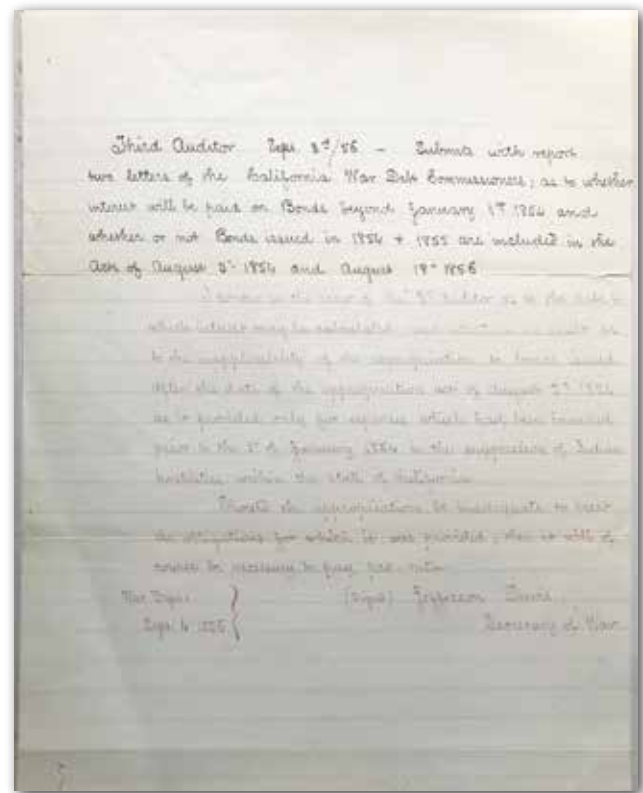 Third Auditor Sept. 3d/56 – Submits with report
two letters of the California War Debt Commissioners; as to whether
interest will be paid on Bonds beyond January 1st 1854 and
whether or not Bonds issued in 1854 + 1855 are included in the
Acts of August 5th 1854 and August 18th 1856
I in the of the 3d Auditor as to the date to
which interest may be calculated, and as
to the inapplicability of the appropriation to bonds issued
after the date of the appropriation act of August 5th 1854
as it provided only for expenses which had been incurred
prior to the 1st of January 1854 in the suppression of Indian
hostilities within the state of California.
Should the appropriation be inadequate to meet
the obligations for which it was provided, then it will of
course be necessary to pay pro-rata
War Dept. (Signed) Jefferson Davis
Sept. 6 1856 Secretary of War